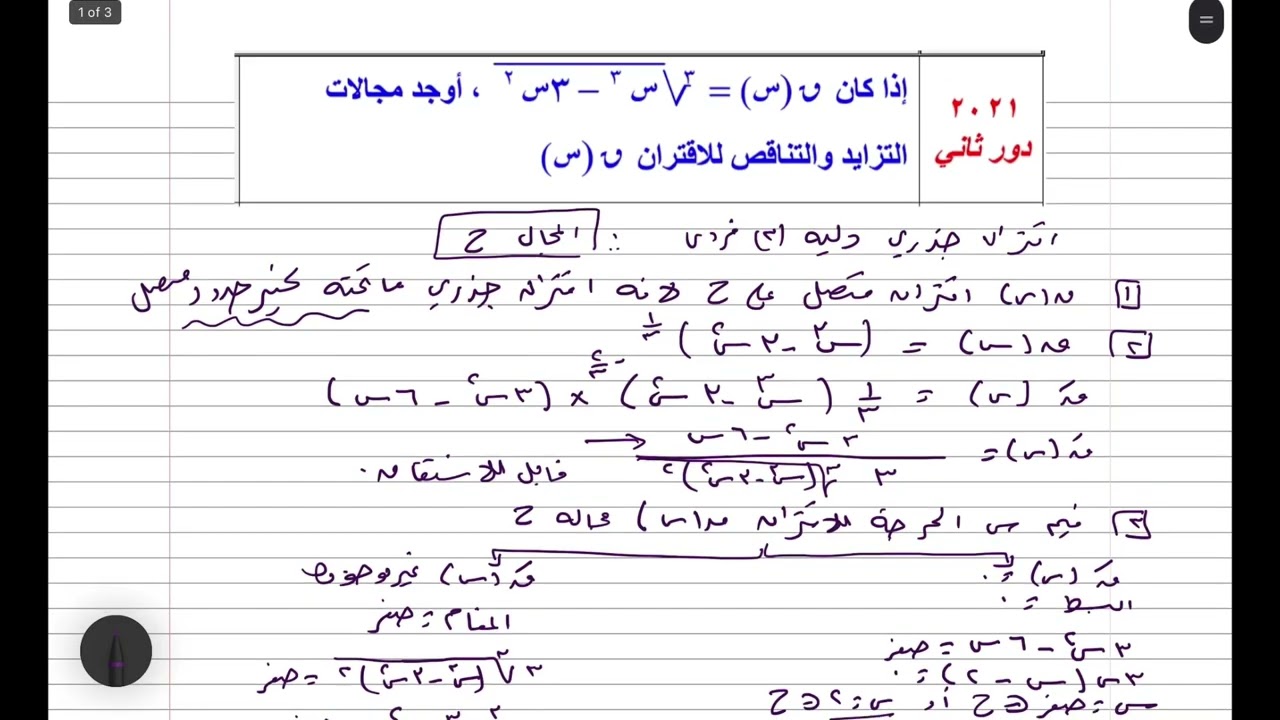 1 of 3
إذا كان ق(س) = ∛(س³ − ٣س²) ، أوجد مجالات
التزايد والتناقص للاقتران ق(س)
٢٠٢١
دور ثاني
اقتران جذري دليله (٣) فردي ∴ المجال ح
١ ق(س) اقتران متصل على ح لأنه اقتران جذري ما تحته كثير حدود متصل
٢ ق(س) = (س³ − ٣س²)^(١/٣)
قَ(س) = ١/٣ (س³ − ٣س²)^(−٢/٣) × (٣س² − ٦س)
قَ(س) = (٣س² − ٦س) / (٣ ∛(س³ − ٣س²)²) → قابل للاشتقاق.
٣ قيم س الحرجة للاقتران ق(س) مجاله ح
قَ(س) = ٠
البسط = ٠
٣س² − ٦س = صفر
٣س(س − ٢) = ٠
س = صفر ∈ ح أو س = ٢ ∈ ح
قَ(س) غير موجودة
المقام = صفر
٣ ∛(س³ − ٣س²)² = صفر